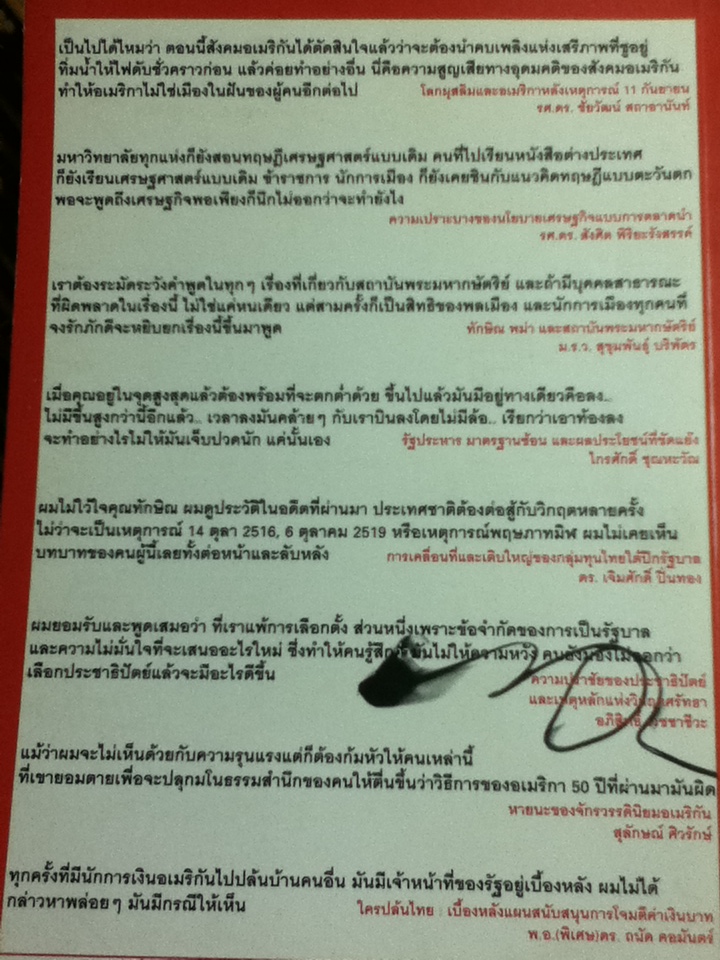 เป็นไปได้ไหมว่า ตอนนี้สังคมอเมริกันได้ตัดสินใจแล้วว่าจะต้องนำคบเพลิงแห่งเสรีภาพที่ชูอยู่
ทิ่มน้ำให้ไฟดับชั่วคราวก่อน แล้วค่อยทำอย่างอื่น นี่คือความสูญเสียทางอุดมคติของสังคมอเมริกัน
ทำให้อเมริกาไม่ใช่เมืองในฝันของผู้คนอีกต่อไป
โลกมุสลิมและอเมริกาหลังเหตุการณ์ 11 กันยายน
รศ.ดร. ชัยวัฒน์ สถาอานันท์
มหาวิทยาลัยทุกแห่งก็ยังสอนทฤษฎีเศรษฐศาสตร์แบบเดิม คนที่ไปเรียนหนังสือต่างประเทศ
ก็ยังเรียนเศรษฐศาสตร์แบบเดิม ข้าราชการ นักการเมือง ก็ยังเคยชินกับแนวคิดทฤษฎีแบบตะวันตก
พอจะพูดถึงเศรษฐกิจพอเพียงก็นึกไม่ออกว่าจะทำยังไง
ความเปราะบางของนโยบายเศรษฐกิจแบบการตลาดนำ
รศ.ดร. สังศิต พิริยะรังสรรค์
เราต้องระมัดระวังคำพูดในทุกๆ เรื่องที่เกี่ยวกับสถาบันพระมหากษัตริย์ และถ้ามีบุคคลสาธารณะ
ที่ผิดพลาดในเรื่องนี้ ไม่ใช่แค่หนเดียว แต่สามครั้งก็เป็นสิทธิของพลเมือง และนักการเมืองทุกคนที่
จงรักภักดีจะหยิบยกเรื่องนี้ขึ้นมาพูด
ทักษิณ พม่า และสถาบันพระมหากษัตริย์
ม.ร.ว. สุขุมพันธุ์ บริพัตร
เมื่อคุณอยู่ในจุดสูงสุดแล้วต้องพร้อมที่จะตกต่ำด้วย ขึ้นไปแล้วมันมีอยู่ทางเดียวคือลง..
ไม่มีขึ้นสูงกว่านี้อีกแล้ว.. เวลาลงมันคล้ายๆ กับเราบินลงโดยไม่มีล้อ.. เรียกว่าเอาท้องลง
จะทำอย่างไรไม่ให้มันเจ็บปวดนัก แค่นั้นเอง
รัฐประหาร มาตรฐานซ้อน และผลประโยชน์ที่ขัดแย้ง
ไกรศักดิ์ ชุณหะวัณ
ผมไม่ไว้ใจคุณทักษิณ ผมดูประวัติในอดีตที่ผ่านมา ประเทศชาติต้องต่อสู้กับวิกฤตหลายครั้ง
ไม่ว่าจะเป็นเหตุการณ์ 14 ตุลา 2516, 6 ตุลาคม 2519 หรือเหตุการณ์พฤษภาทมิฬ ผมไม่เคยเห็น
บทบาทของคนผู้นี้เลยทั้งต่อหน้าและลับหลัง
การเคลื่อนที่และเติบใหญ่ของกลุ่มทุนไทยใต้ปีกรัฐบาล
ดร. เจิมศักดิ์ ปิ่นทอง
ผมยอมรับและพูดเสมอว่า ที่เราแพ้การเลือกตั้ง ส่วนหนึ่งเพราะข้อจำกัดของการเป็นรัฐบาล
และความไม่มั่นใจที่จะเสนออะไรใหม่ ซึ่งทำให้คนรู้สึกว่ามันไม่ให้ความหวัง คนยังมองไม่ออกว่า
เลือกประชาธิปัตย์แล้วจะมีอะไรดีขึ้น
ความปราชัยของประชาธิปัตย์
และเหตุหลักแห่งวิกฤตศรัทธา
อภิสิทธิ์ เวชชาชีวะ
แม้ว่าผมจะไม่เห็นด้วยกับความรุนแรงแต่ก็ต้องก้มหัวให้คนเหล่านี้
ที่เขายอมตายเพื่อจะปลุกมโนธรรมสำนึกของคนให้ตื่นขึ้นว่าวิธีการของอเมริกา 50 ปีที่ผ่านมามันผิด
หายนะของจักรวรรดินิยมอเมริกัน
สุลักษณ์ ศิวรักษ์
ทุกครั้งที่มีนักการเงินอเมริกันไปปล้นบ้านคนอื่น มันมีเจ้าหน้าที่ของรัฐอยู่เบื้องหลัง ผมไม่ได้
กล่าวหาพล่อยๆ มันมีกรณีให้เห็น
ใครปล้นไทย : เบื้องหลังแผนสนับสนุนการโจมตีค่าเงินบาท
พ.อ.(พิเศษ)ดร. ถนัด คอมันตร์